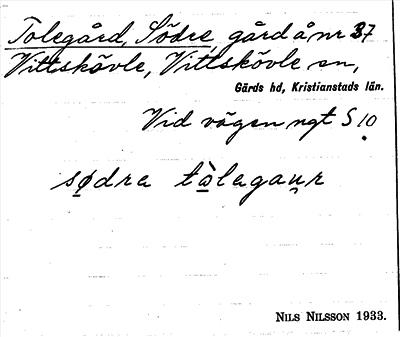 Tolegård, Södra, gård å nr 37
Vittskövle, Vittskövle sn,
Gärds hd, Kristianstads län.
Vid vägen ngt S 10
sødra tòlagaun̥r
NILS NILSSON 1933.